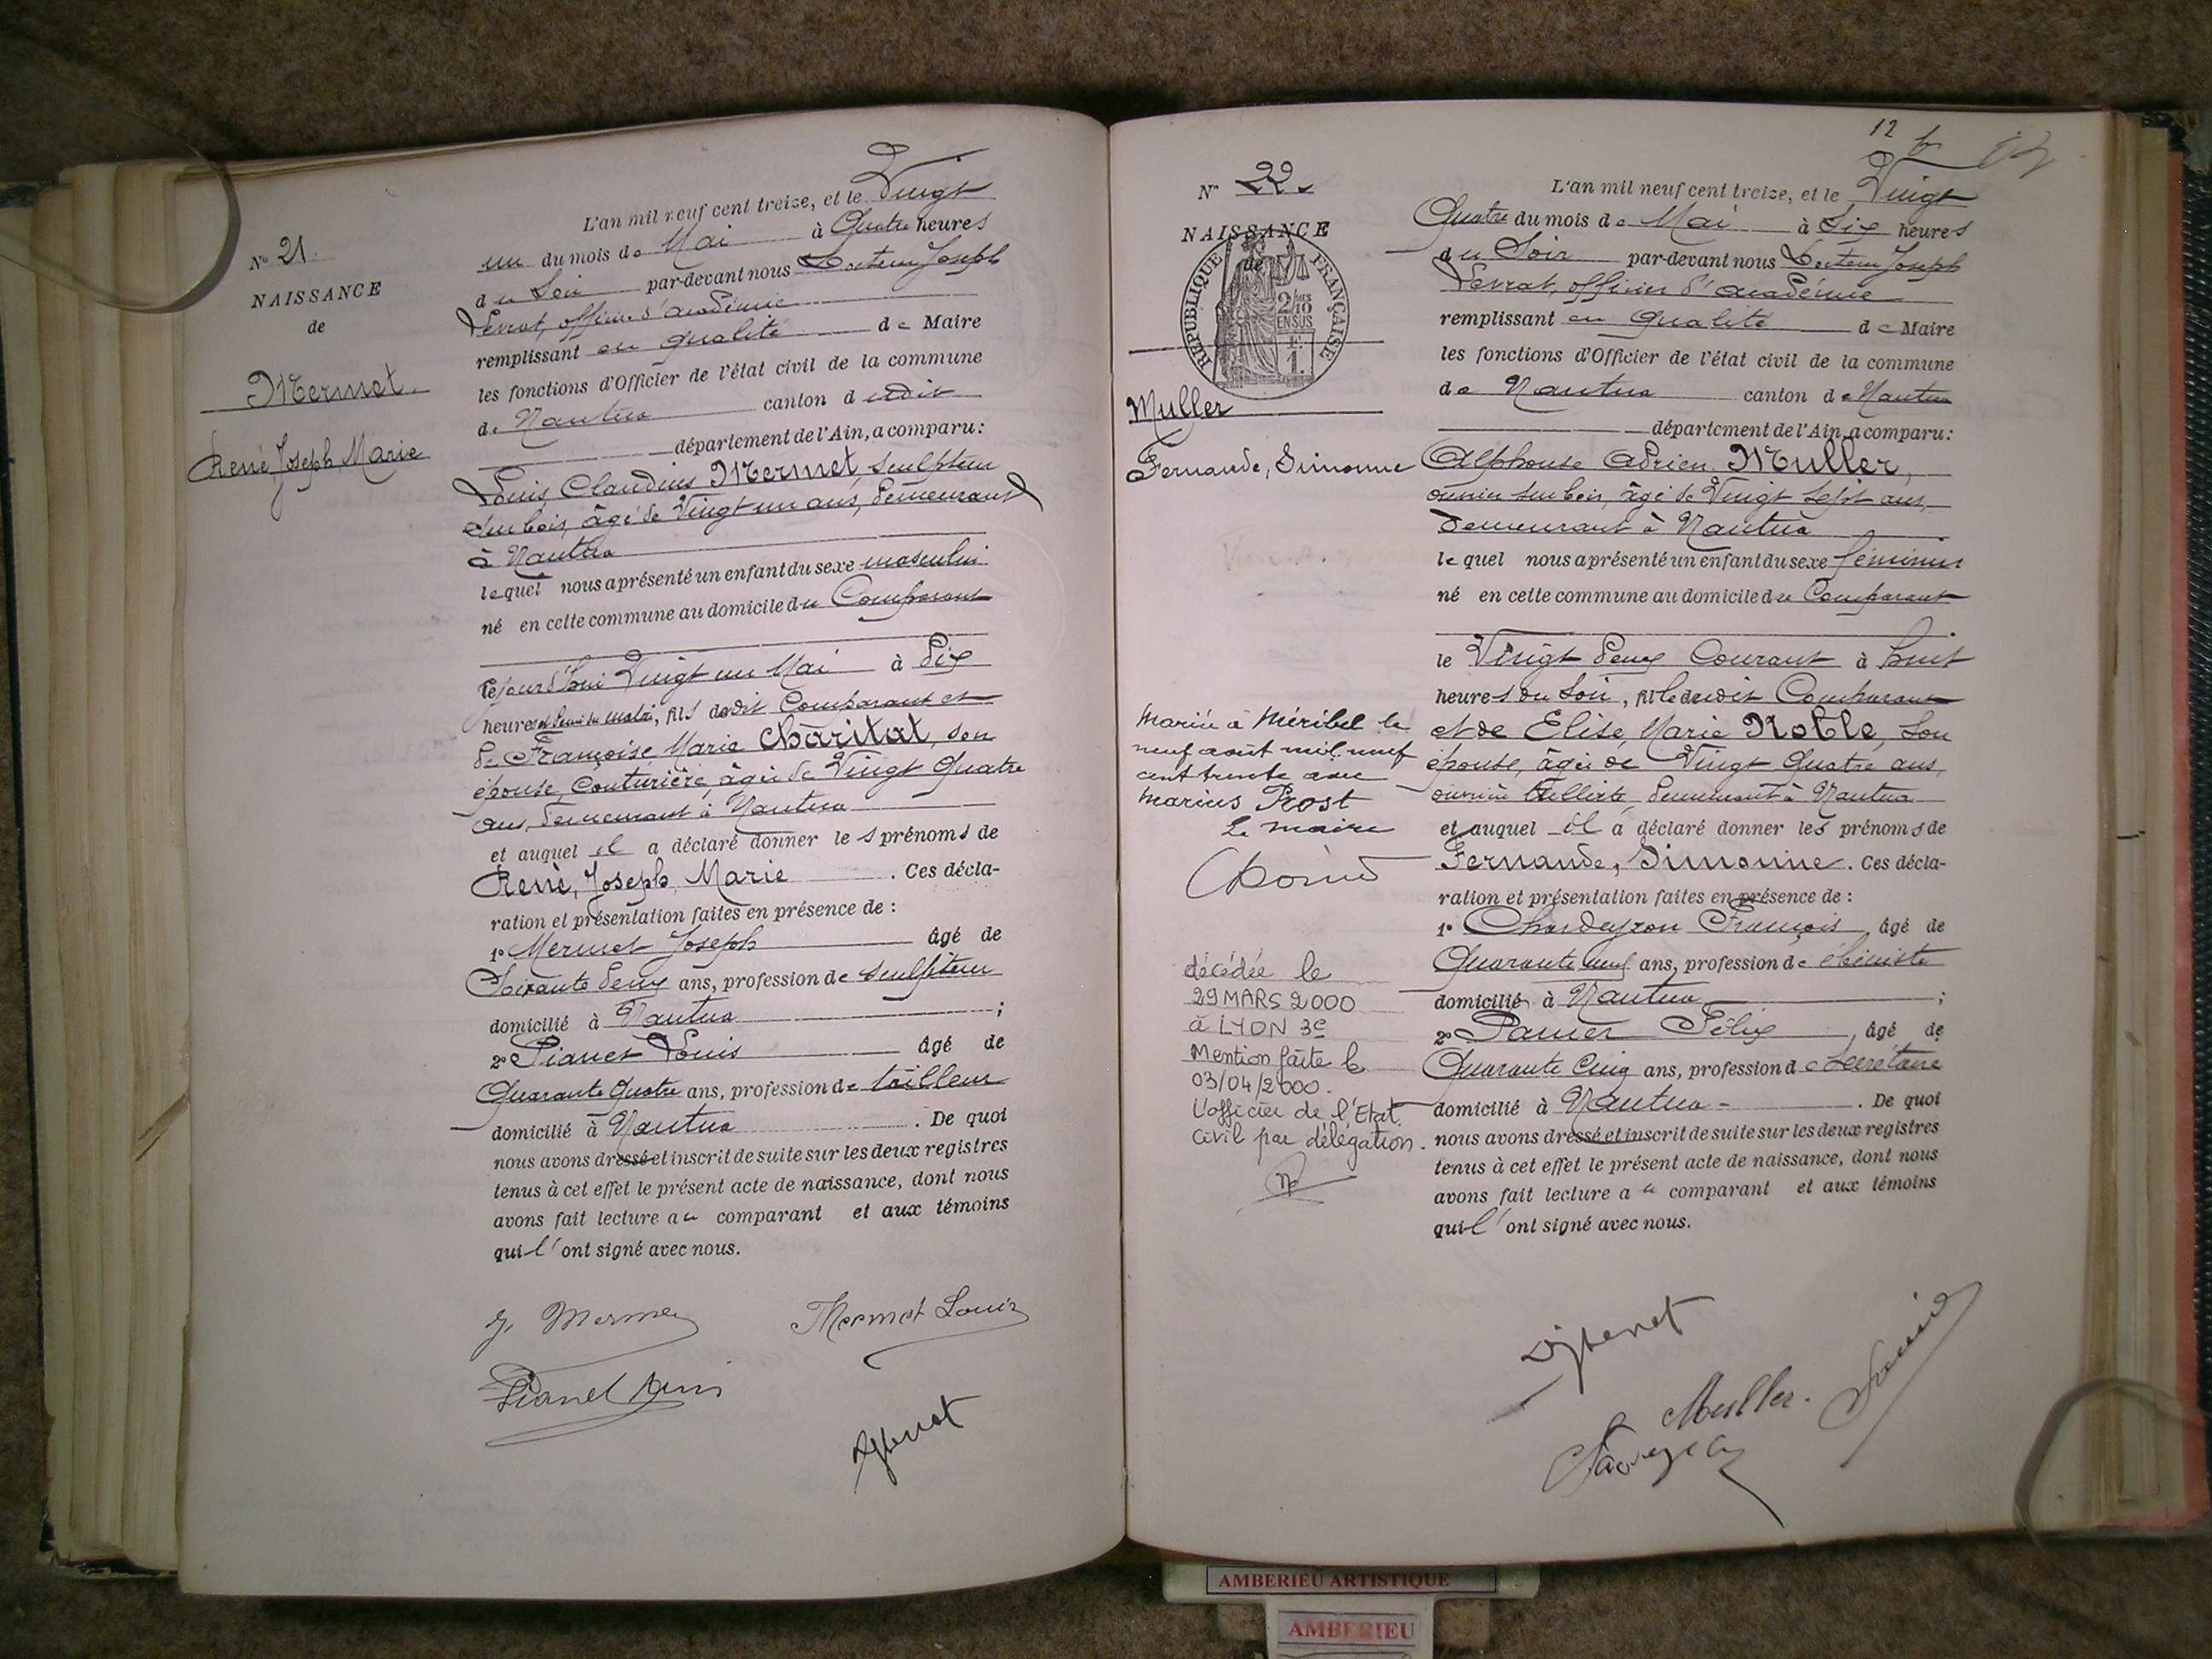 N° 21.
NAISSANCE
de
Mermet.
René Joseph Marie
L'an mil neuf cent treize, et le Vingt
un du mois de Mai à Quatre heures
du Soir par-devant nous Docteur Joseph
officier d'académie
remplissant en qualité de Maire
les fonctions d'Officier de l'état civil de la commune
de Nantua canton dudit
département de l'Ain, a comparu:
Louis Claudius Mermet, sculpteur
sur bois, âgé de Vingt un ans, demeurant
à Nantua
lequel nous a présenté un enfant du sexe masculin
né en cette commune au domicile du Comparant
le jourd'hui Vingt un Mai à Dix
heures et demi du matin, fils dudit Comparant et
de Françoise Marie Charitat, son
épouse, Couturière, âgée de Vingt Quatre
ans, demeurant à Nantua
et auquel il a déclaré donner les prénoms de
René, Joseph, Marie. Ces décla-
ration et présentation faites en présence de :
1° Mermet Joseph âgé de
Soixante deux ans, profession de sculpteur
domicilié à Nantua ;
2° Pianet Louis âgé de
Quarante Quatre ans, profession de tailleur
domicilié à Nantua. De quoi
nous avons dressé et inscrit de suite sur les deux registres
tenus à cet effet le présent acte de naissance, dont nous
avons fait lecture au comparant et aux témoins
qui l'ont signé avec nous.
J. Mermet Mermet Louis
Pianet
12
N° 22.
NAISSANCE
de
RÉPUBLIQUE FRANÇAISE
2/10 MES
EN SUS
1 F.
Muller
Fernande, Simonne
Mariée à Méribel le
neuf août mil neuf
cent trente avec
Marius Prost
Le maire
décédée le
29 MARS 2000
à LYON 3e
Mention faite le
03/04/2000.
L'officier de l'Etat
civil par délégation.
L'an mil neuf cent treize, et le Vingt
Quatre du mois de Mai à Six heures
du Soir par-devant nous Docteur Joseph
officier d'académie
remplissant en qualité de Maire
les fonctions d'Officier de l'état civil de la commune
de Nantua canton de Nantua
département de l'Ain, a comparu:
Alphonse Adrien Muller,
ouvrier sur bois, âgé de Vingt Sept ans,
demeurant à Nantua
lequel nous a présenté un enfant du sexe féminin
né en cette commune au domicile du Comparant
le Vingt deux Courant à huit
heures du Soir, fille dudit Comparant
et de Elise, Marie Noble, Son
épouse, âgée de Vingt Quatre ans,
ouvrière tulliste, demeurant à Nantua
et auquel il a déclaré donner les prénoms de
Fernande, Simonne. Ces décla-
ration et présentation faites en présence de :
1° Chardeyron François âgé de
Quarante neuf ans, profession de ébéniste
domicilié à Nantua ;
2° Panier Félix âgé de
Quarante Cinq ans, profession de Secrétaire
domicilié à Nantua. De quoi
nous avons dressé et inscrit de suite sur les deux registres
tenus à cet effet le présent acte de naissance, dont nous
avons fait lecture au comparant et aux témoins
qui l'ont signé avec nous.
Muller.
AMBERIEU ARTISTIQUE
AMBERIEU